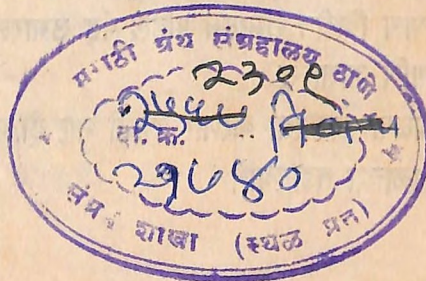 मराठी ग्रंथ संग्रहालय ठाणे
२३०९
दा. क्र.
२१७४०
संदर्भ शाखा (स्थळ प्रत)